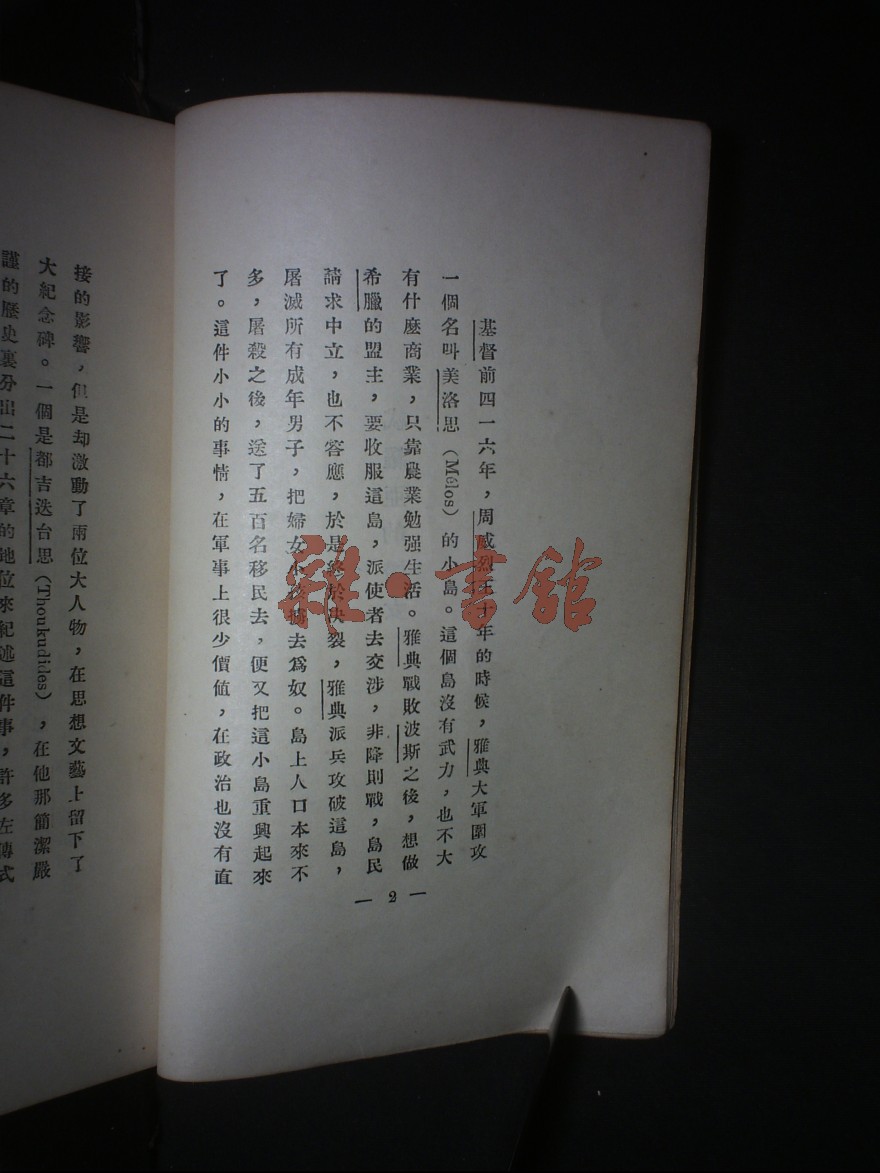 基督前四一六年，周威烈王十年的時候，雅典大軍圍攻
一個名叫美洛思（Mêlos）的小島。這個島沒有武力，也不大
有什麽商業，只靠農業勉强生活。雅典戰敗波斯之後，想做
希臘的盟主，要收服這島，派使者去交涉，非降則戰，島民
請求中立，也不容應，於是終於決裂，雅典派兵攻破這島，
屠滅所有成年男子，把婦女小孩擄去爲奴。島上人口本來不
多，屠殺之後，送了五百名移民去，便又把這小島重興起來
了。這件小小的事情，在軍事上很少價値，在政治也沒有直
— 2 —
接的影響，但是却激動了兩位大人物，在思想文藝上留下了
大紀念碑。一個是都吉迭台思（Thoukudides），在他那簡潔嚴
謹的歷史裏分出二十六章的地位來紀述這件事，許多左傳式
雜·書館